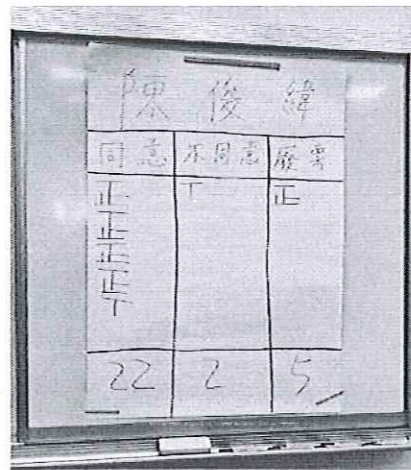 陳俊緯
同意 不同意 廢票
正 丅 正
正
正
正
丅
22 2 5